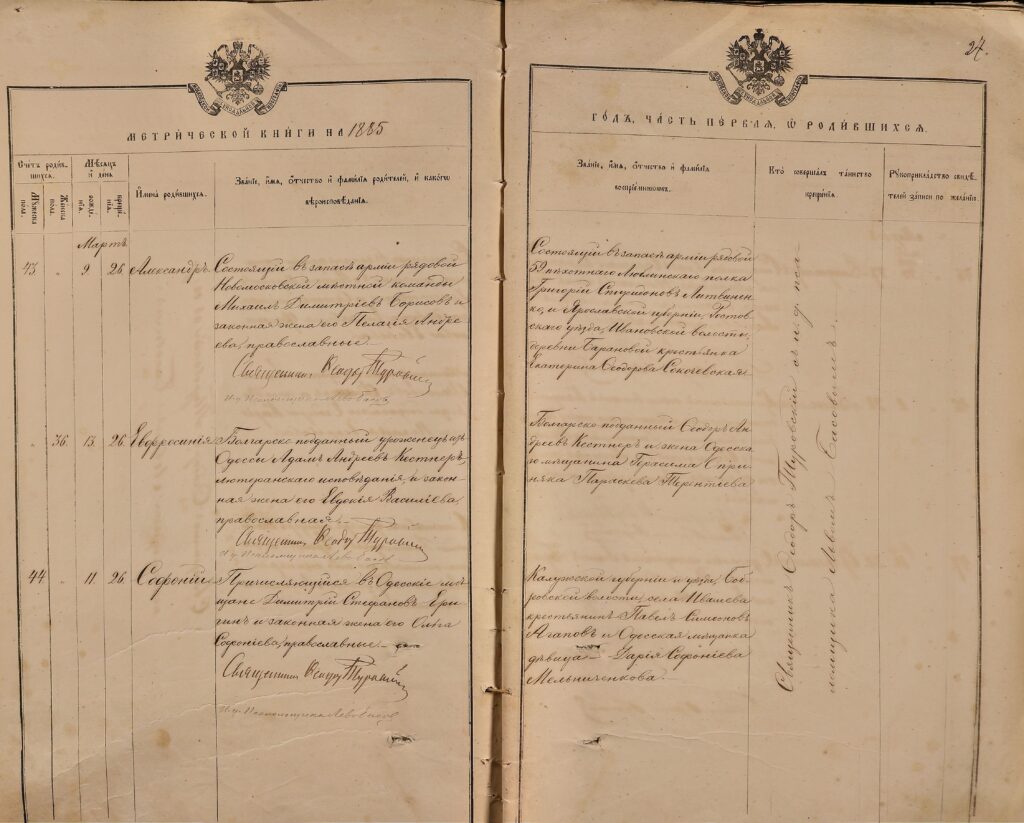 27.
МЕТРИЧЕСКОЙ КНИГИ НА 1885
ГОДЪ, ЧАСТЬ ПЕРВАЯ, Ѡ РОДИВШИХСЯ.
Счетъ родив-
шихся.
Мужеска
пола.
Женска
пола.
Мѣсяцъ
и день
рожде-
нія.
креще-
нія.
Имена родившихся.
Званіе, имя, ѻтчество и фамилія родителей, и какогѡ
вѣроисповѣданія.
Званіе, имя, ѻтчество и фамилія
воспріемниковъ.
Кто совершалъ таинство
крещенія.
Рукоприкладство свидѣ-
телей записи по желанію.
Мартъ
43 „ 9 26 Александръ
Состоящій въ запасѣ арміи рядовой
Новомосковской мѣстной команды
Михаилъ Димитріевъ Борисовъ и
законная жена его Пелагія Андре
ева, православные.
Священникъ Ѳеодоръ Туровскій
И. д. Псаломщика Левъ
Состоящій въ запасѣ арміи рядовой
59 пѣхотнаго Люблинскаго полка
Григорій Спиридоновъ Литвинен
ко, и Ярославской губерніи, Ростов
скаго уѣзда, Ивановской волости,
деревни Барановой крестьянка
Екатерина Ѳеодорова
„ 36. 13 26 Евфросинія
подданный уроженецъ изъ
Одессы Адамъ Андреевъ Кестнеръ,
лютеранскаго исповѣданія, и закон
ная жена его Евдокія Васильева,
православная.
Священникъ Ѳеодоръ Туровскій
И. д. Псаломщика Левъ
подданный Ѳеодоръ Ан
дреевъ Кестнеръ и жена Одесска
го мѣщанина Герасима
Параскева Терентіева
44 „ 11 26 Софроній
Причисляющійся въ Одесскіе мѣ
щане Димитрій Стефановъ Еры
гинъ и законная жена его Ольга
Софоніева, православные.
Священникъ Ѳеодоръ Туровскій
И. д. Псаломщика Левъ
Калужской губерніи и уѣзда,
волости, села
крестьянинъ Павелъ Симоновъ
Агаповъ и Одесская мѣщанка
дѣвица Дарія Софоніева
Мельниченкова.
Священникъ Ѳеодоръ Туровскій съ и. д. пса
ломщика Львомъ